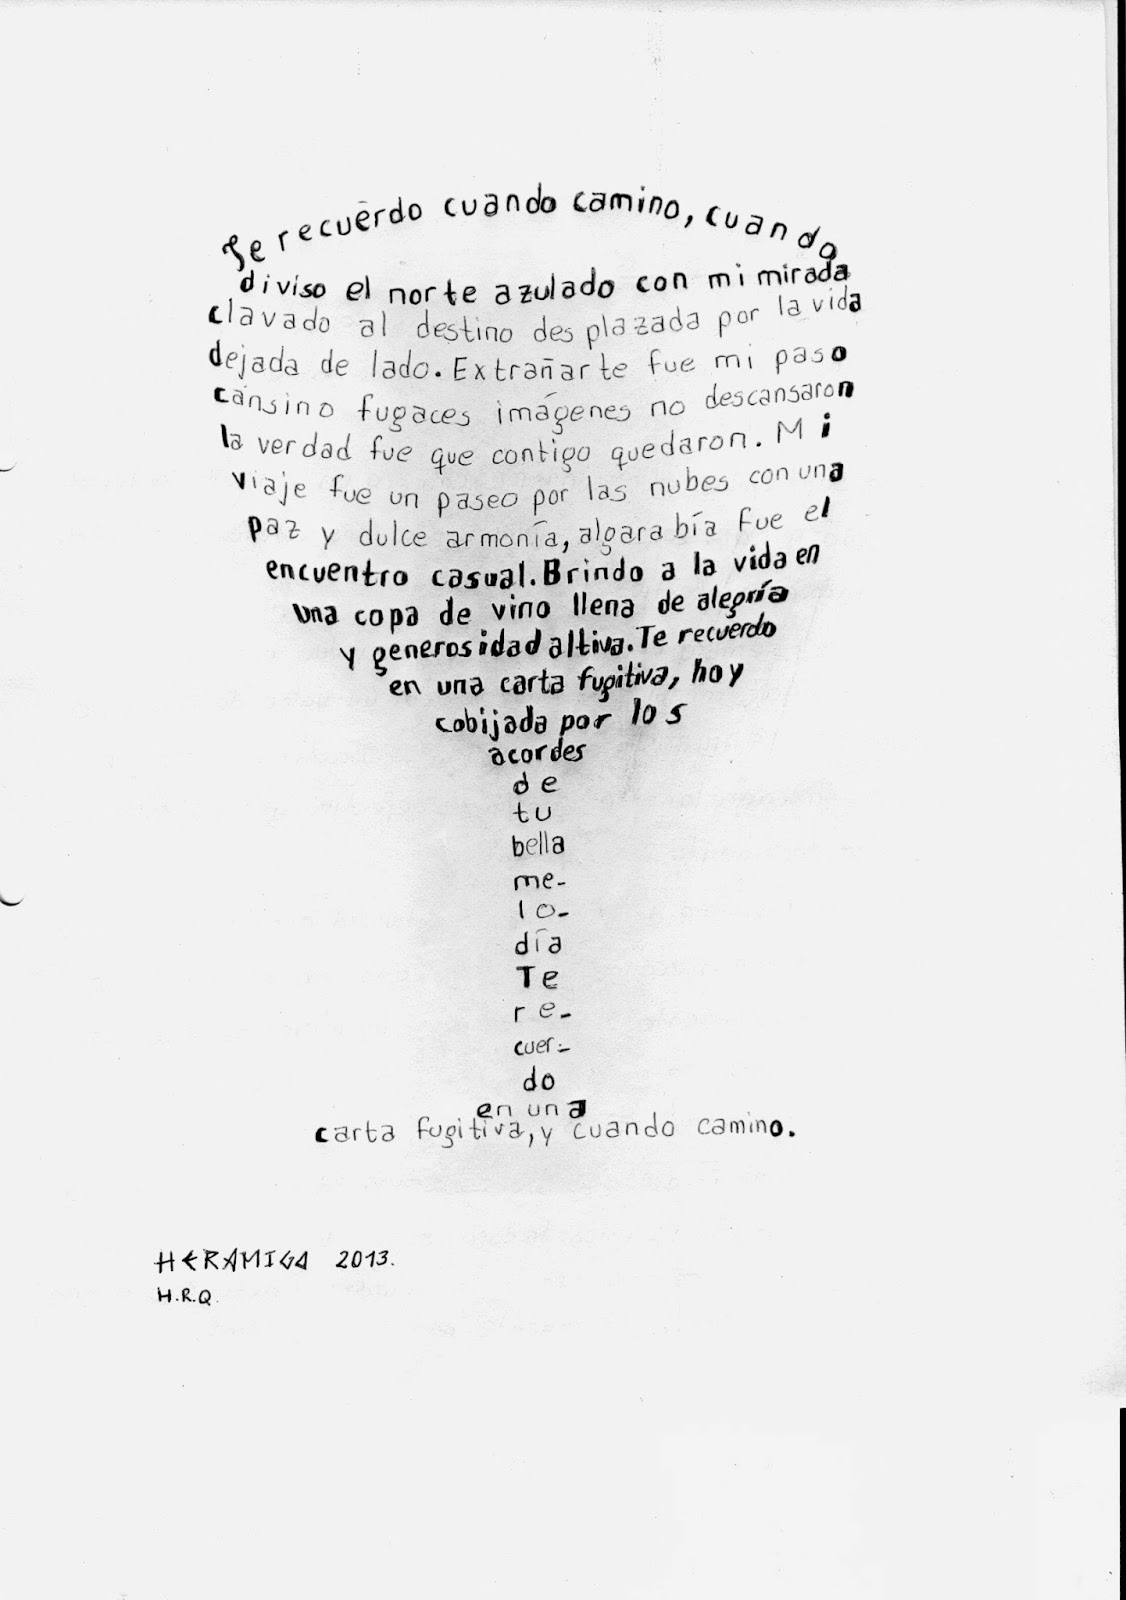 Te recuerdo cuando camino, cuando
diviso el norte azulado con mi mirada
clavado al destino desplazada por la vida
dejada de lado. Extrañarte fue mi paso
cansino fugaces imágenes no descansaron
la verdad fue que contigo quedaron. Mi
viaje fue un paseo por las nubes con una
paz y dulce armonía, algarabía fue el
encuentro casual. Brindo a la vida en
una copa de vino llena de alegría
y generosidad altiva. Te recuerdo
en una carta fugitiva, hoy
cobijada por los
acordes
de
tu
bella
me-
lo-
día
Te
re-
cuer-
do
en una
carta fugitiva, y cuando camino.
HERAMIGA 2013.
H.R.Q.